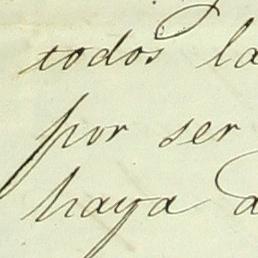 todos la
por ser
haya a